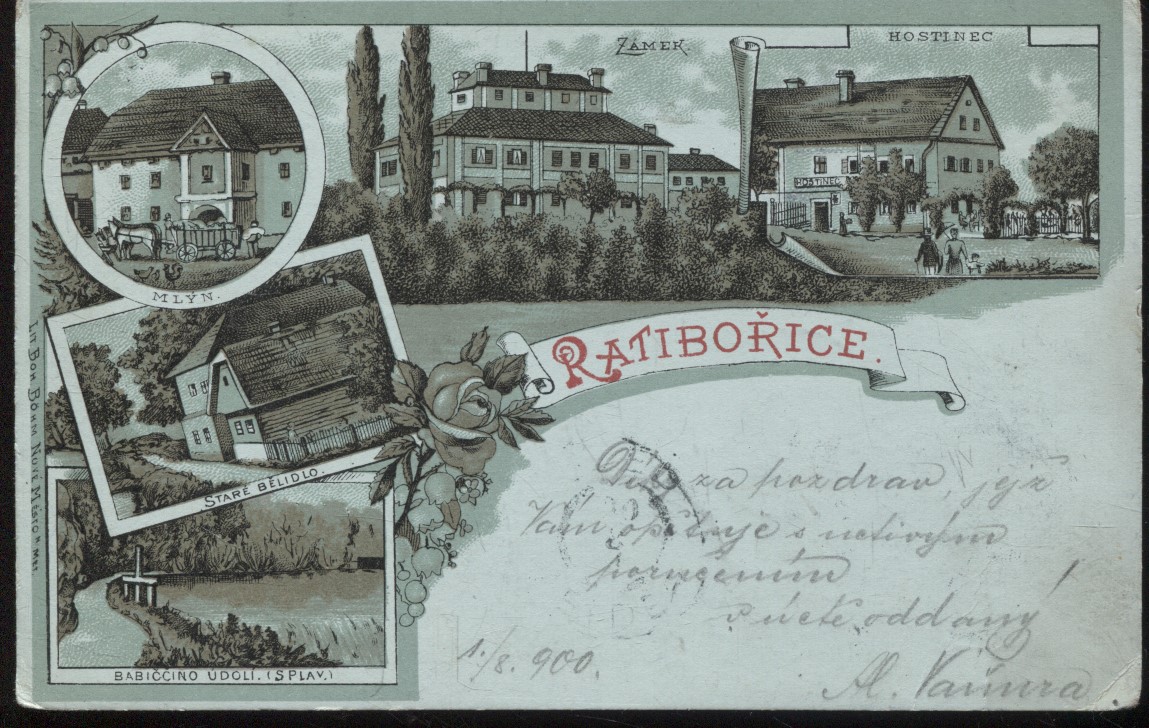 ZÁMEK.
HOSTINEC
HOSTINEC
MLÝN.
RATIBOŘICE.
STARÉ BĚLIDLO.
BABIČČINO ÚDOLÍ. (SPLAV.)
LIT. BOH. BÖHM NOVÉ MĚSTO N. MET.
Dík za pozdrav, jejž
Vám opětuje s uctivým
poručením
v úctě oddaný
1./8. 900.